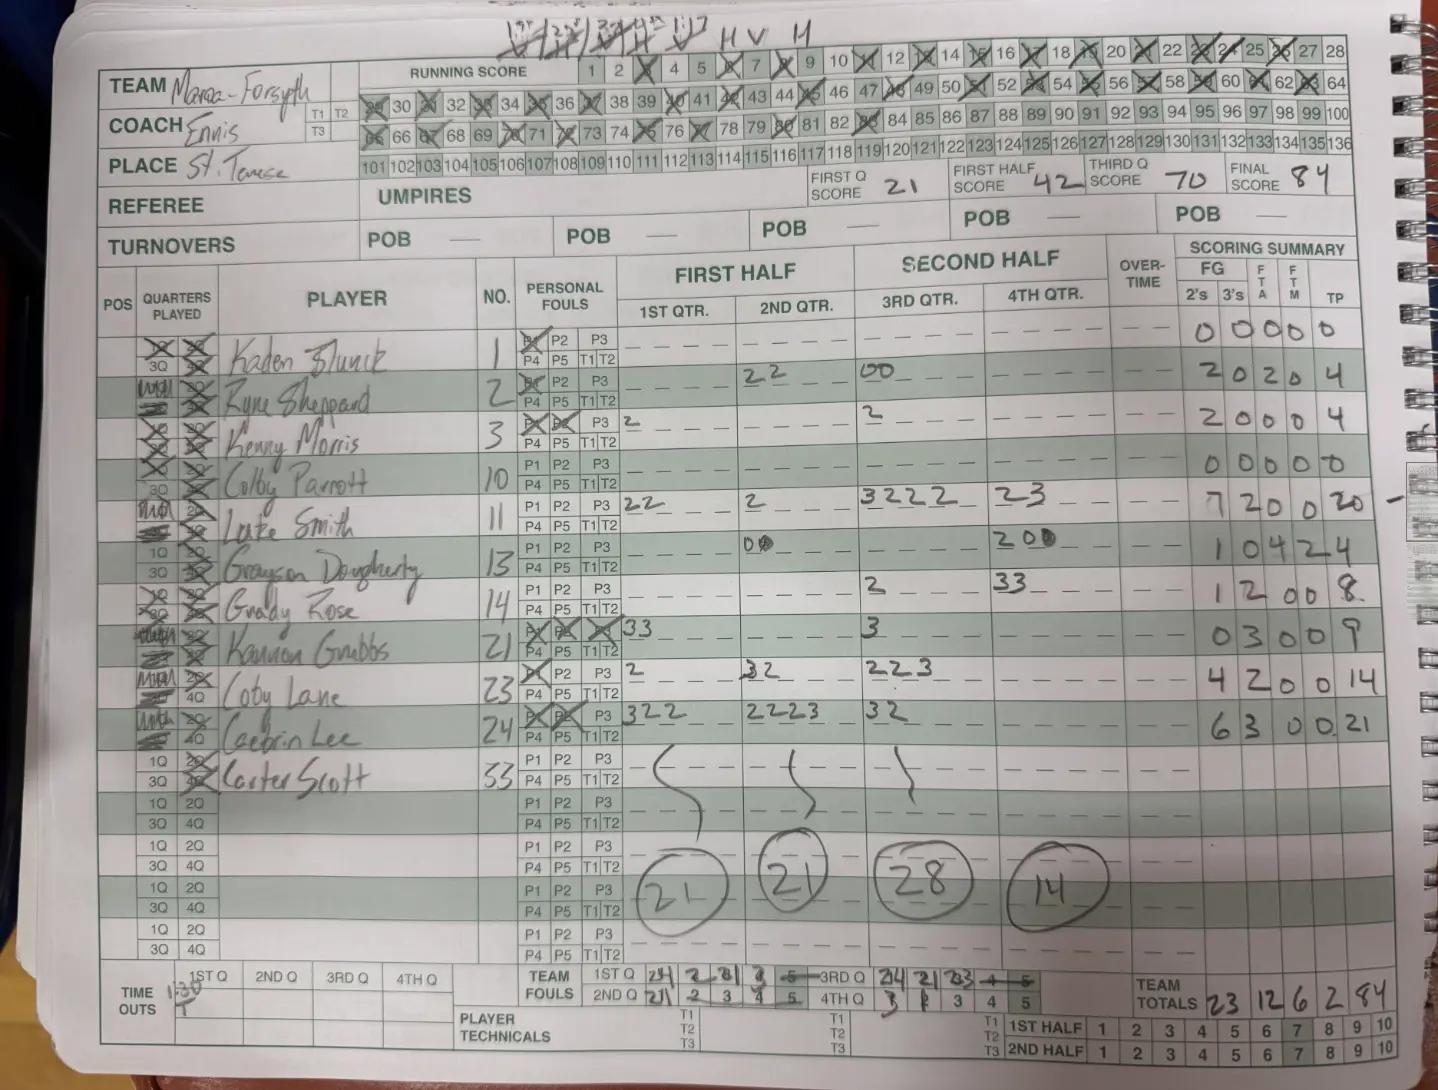 H V H
TEAM Maroa-Forsyth RUNNING SCORE 1 2 3 4 5 6 7 8 9 10 11 12 13 14 15 16 17 18 19 20 21 22 23 24 25 26 27 28
T1 T2 29 30 31 32 33 34 35 36 37 38 39 40 41 42 43 44 45 46 47 48 49 50 51 52 53 54 55 56 57 58 59 60 61 62 63 64
COACH Ennis T3 65 66 67 68 69 70 71 72 73 74 75 76 77 78 79 80 81 82 83 84 85 86 87 88 89 90 91 92 93 94 95 96 97 98 99 100
PLACE St. Terese 101 102 103 104 105 106 107 108 109 110 111 112 113 114 115 116 117 118 119 120 121 122 123 124 125 126 127 128 129 130 131 132 133 134 135 136
REFEREE UMPIRES FIRST Q SCORE 21 FIRST HALF SCORE 42 THIRD Q SCORE 70 FINAL SCORE 84
TURNOVERS POB — POB — POB — POB — POB —
POS QUARTERS PLAYED PLAYER NO. PERSONAL FOULS FIRST HALF SECOND HALF OVER-TIME SCORING SUMMARY
1ST QTR. 2ND QTR. 3RD QTR. 4TH QTR. FG 2's 3's FTA FTM TP
3Q Kaden 1 P2 P3 P4 P5 T1 T2 0 0 0 0 0
Ryne Sheppard 2 P2 P3 P4 P5 T1 T2 22 00 2 0 2 0 4
Kenny Morris 3 P3 P4 P5 T1 T2 2 2 2 0 0 0 4
3Q Colby Parrott 10 P1 P2 P3 P4 P5 T1 T2 0 0 0 0 0
Smith 11 P1 P2 P3 P4 P5 T1 T2 22 2 3222 23 7 2 0 0 20 -
1Q 3Q Grayson Dougherty 13 P1 P2 P3 P4 P5 T1 T2 1 0 4 2 4
Grady Rose 14 P1 P2 P3 P4 P5 T1 T2 2 33 1 2 0 0 8
Kannon Grubbs 21 P4 P5 T1 T2 33 3 0 3 0 0 9
4Q Coby Lane 23 P2 P3 P4 P5 T1 T2 2 32 223 4 2 0 0 14
4Q Caebrin Lee 24 P3 P4 P5 T1 T2 322 2223 32 6 3 0 0 21
1Q 3Q Carter Scott 33 P1 P2 P3 P4 P5 T1 T2
1Q 2Q P1 P2 P3
3Q 4Q P4 P5 T1 T2
1Q 2Q P1 P2 P3
3Q 4Q P4 P5 T1 T2 21 21 28 14
1Q 2Q P1 P2 P3
3Q 4Q P4 P5 T1 T2
1Q 2Q P1 P2 P3
3Q 4Q P4 P5 T1 T2
TIME OUTS 1ST Q 2ND Q 3RD Q 4TH Q TEAM FOULS 1ST Q 3RD Q
1:30 T 2ND Q 4TH Q 3 4 5 TEAM TOTALS 23 12 6 2 84
PLAYER TECHNICALS T1 T2 T3 T1 T2 T3 T1 T2 T3 1ST HALF 1 2 3 4 5 6 7 8 9 10
2ND HALF 1 2 3 4 5 6 7 8 9 10